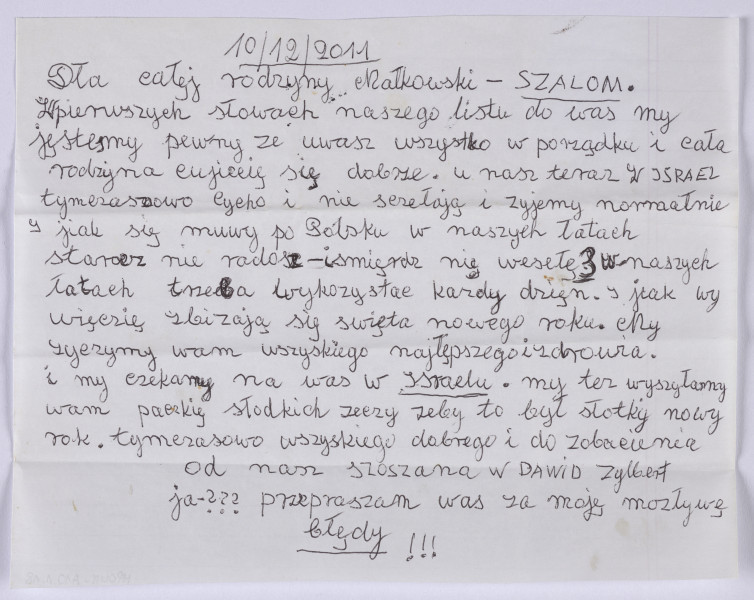 10/12/2011
Dła całęj rodzyny Małkowski - SZALOM.
Wpierwszych słowach naszego listu do was my
jęstęsmy pewny ze uwasz wszystko w porządku i cała
rodzyna cujiecię się dobże. u nasz teraz W ISRAEL
tymczaszowo Cycho i nie sczełają i zyjemy normałnie
I jiak się muwy po Polsku w naszych łatach
starocz nie radosz - ismięrdz nię wesełę 3 w naszych
łatach trzeba wykozystac kazdy dzięn. I jiak wy
więczię zbizają się swięta nowego roku. My
zyczymy wam wszyskiego najłępszego i zdrowia.
i my czekamy na was w Israelu. my tez wyszyłamy
wam paczkię słodkich zeczy zeby to był słotky nowy
rok. tymczasowo wszyskiego dobrego i do zobaczenia
od nasz szoszana W DAWID Zylbert
ja-??? przepraszam was za moję mozływę
błędy !!!